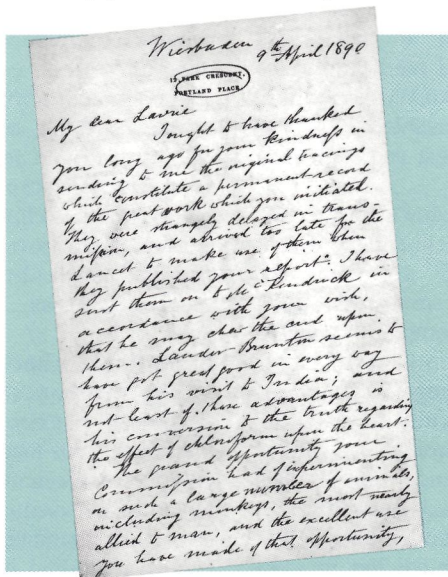 Wiesbaden
9th April 1890
12, PARK CRESCENT.
PORTLAND PLACE.
My dear Lawrie
I ought to have thanked
you long ago for your kindness in
sending to me the original tracings
which constitute a permanent record
of the great work which you initiated.
They were strangely delayed in trans-
mission, and arrived too late for the
Lancet to make use of them when
they published your report. I have
sent them on to McKendrick in
accordance with your wish,
that he may chew the cud upon
them. Lauder Brunton seems to
have got great good in every way
from his visit to India; and
not least of these advantages is
his conversion to the truth regarding
the effect of chloroform upon the heart.
The grand opportunity your
Commission had of experimenting
on such a large number of animals,
including monkeys, the most nearly
allied to man, and the excellent use
you have made of that opportunity,